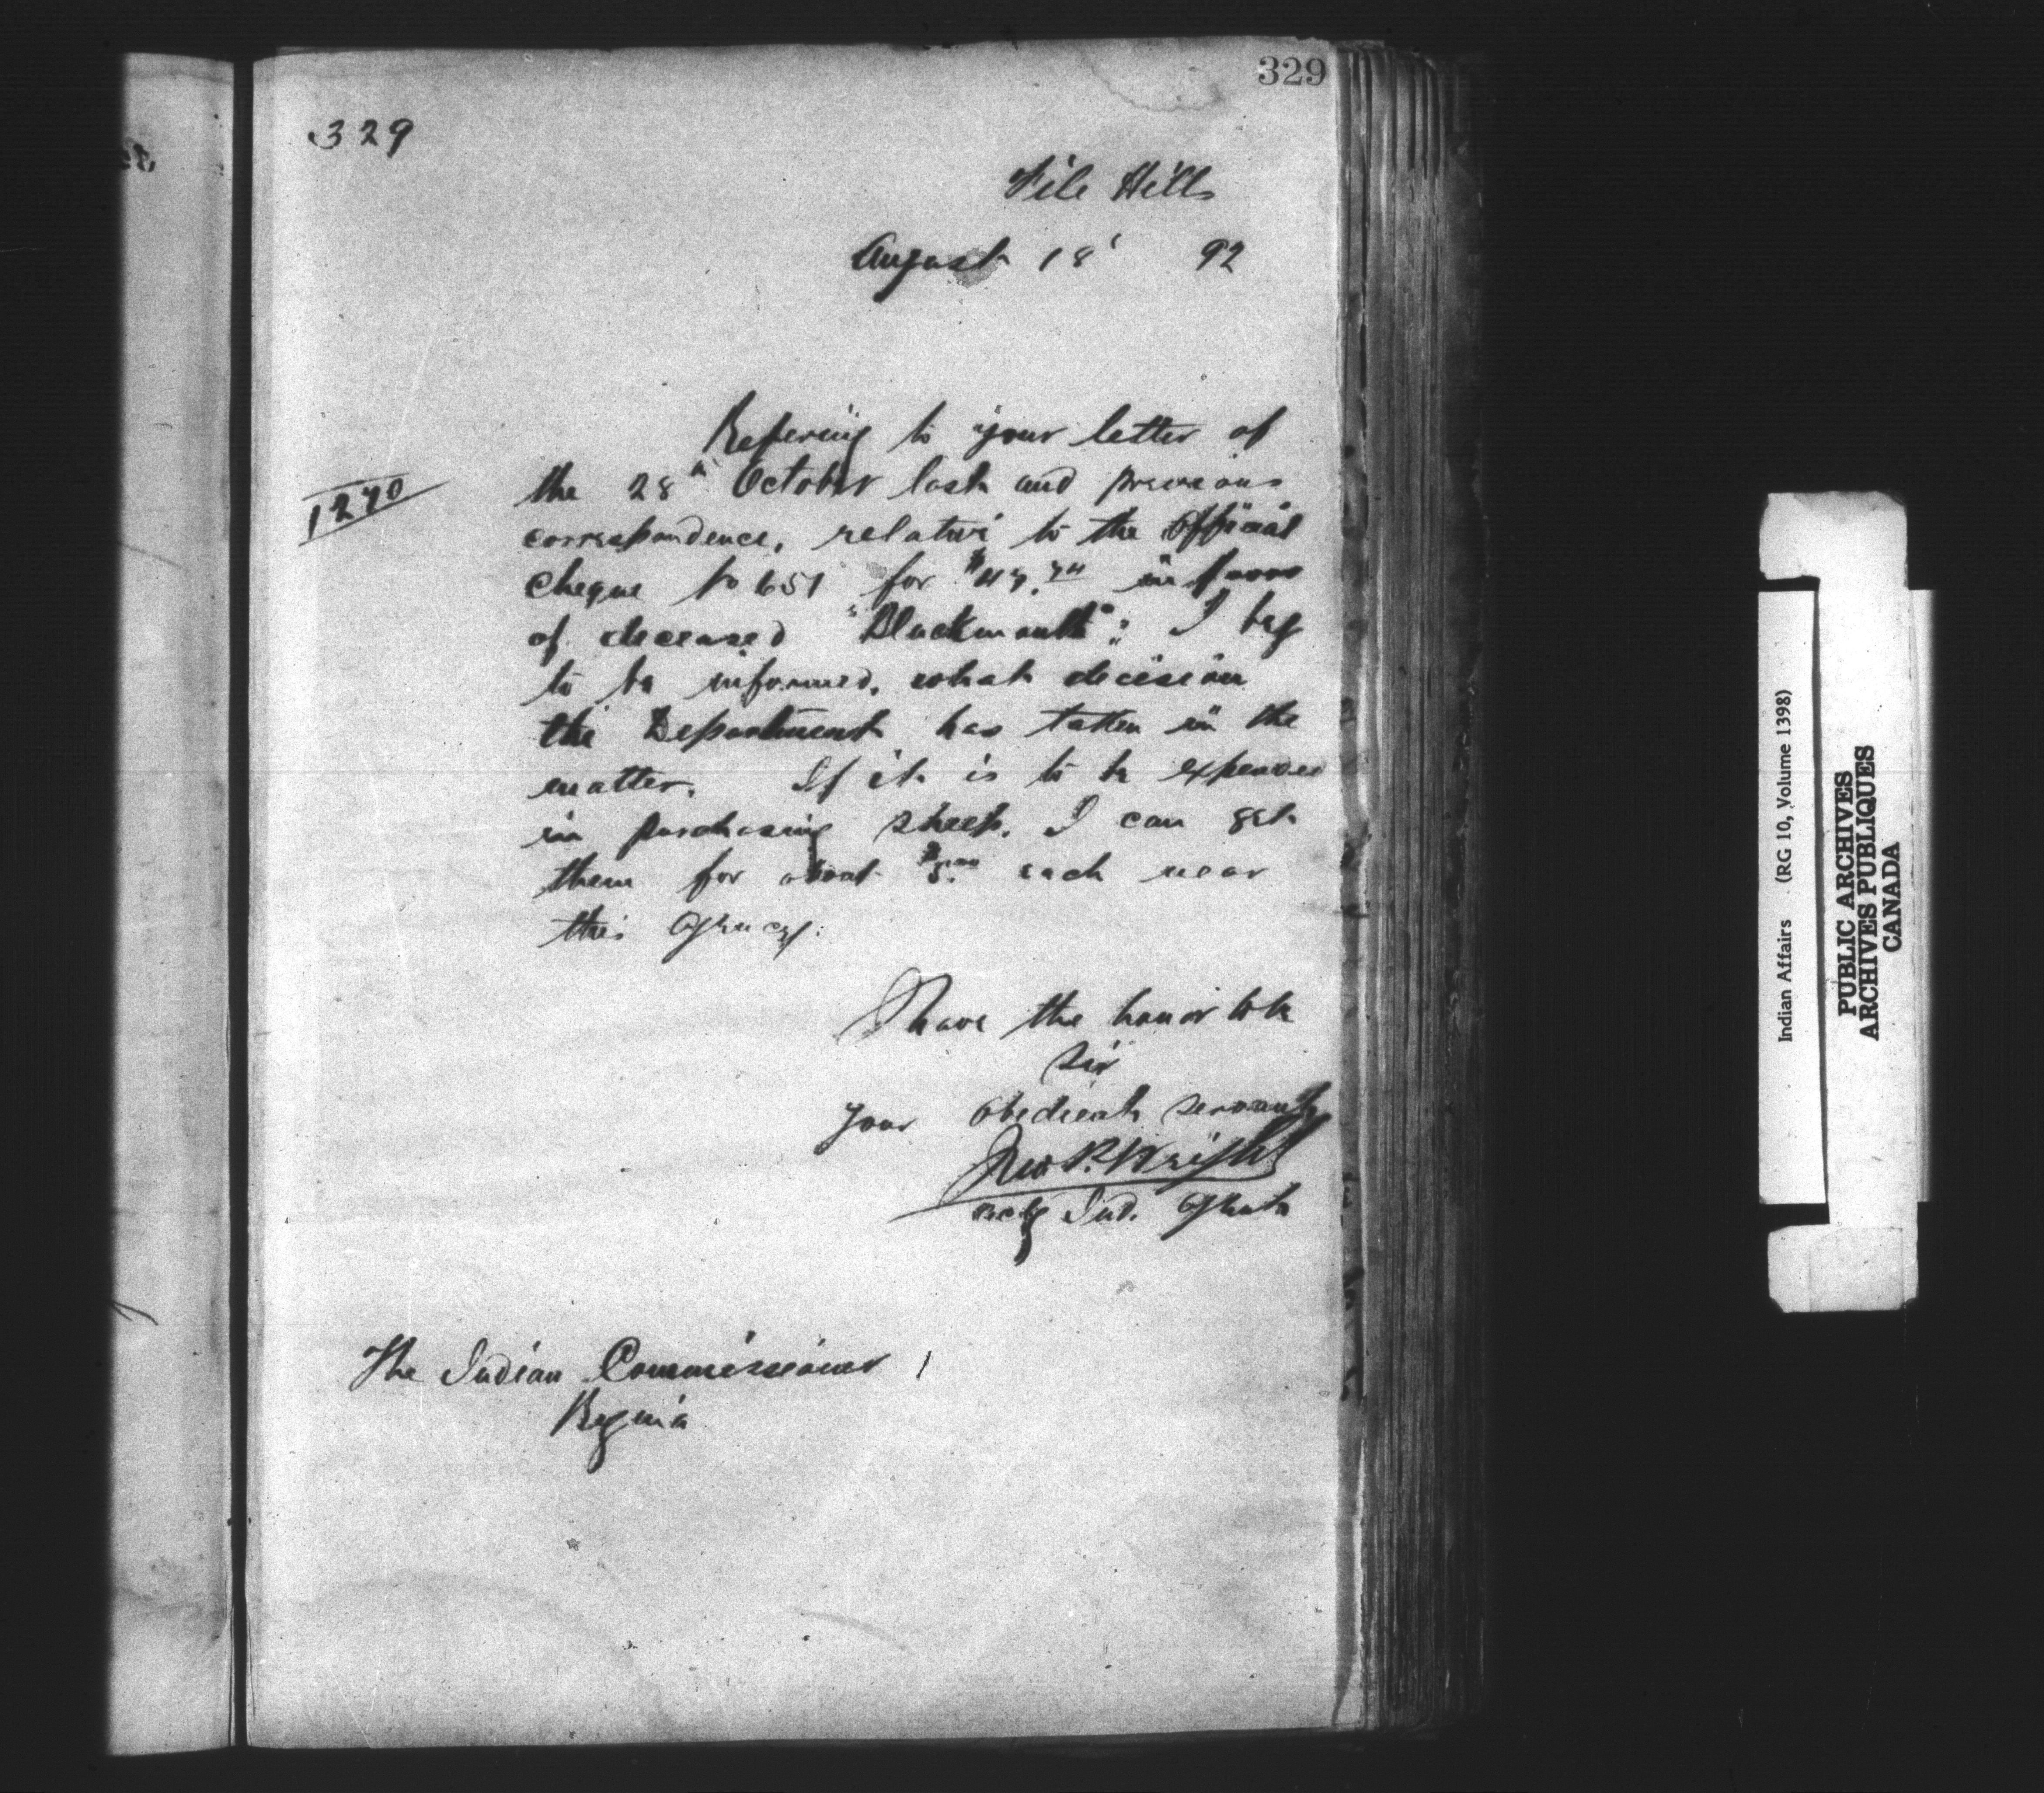 329
329
File Hills
August 18' 92
Refering to your letter of
1270
the 28th October last and previous
correspondence, relative to the Official
Cheque No 651 for $47.74 in favor
of deceased "Blackmouth": I beg
to be informed, what decision
the Department has taken in the
matter. If it is to be expended
in purchasing sheep, I can get
them for about $5.00 each near
this Agency.
I have the honor to be
Sir
Your Obedient Servant
P. Wright
Actg Ind. Agent
The Indian Commissioner
Regina
Indian Affairs (RG 10, Volume 1398)
PUBLIC ARCHIVES
ARCHIVES PUBLIQUES
CANADA